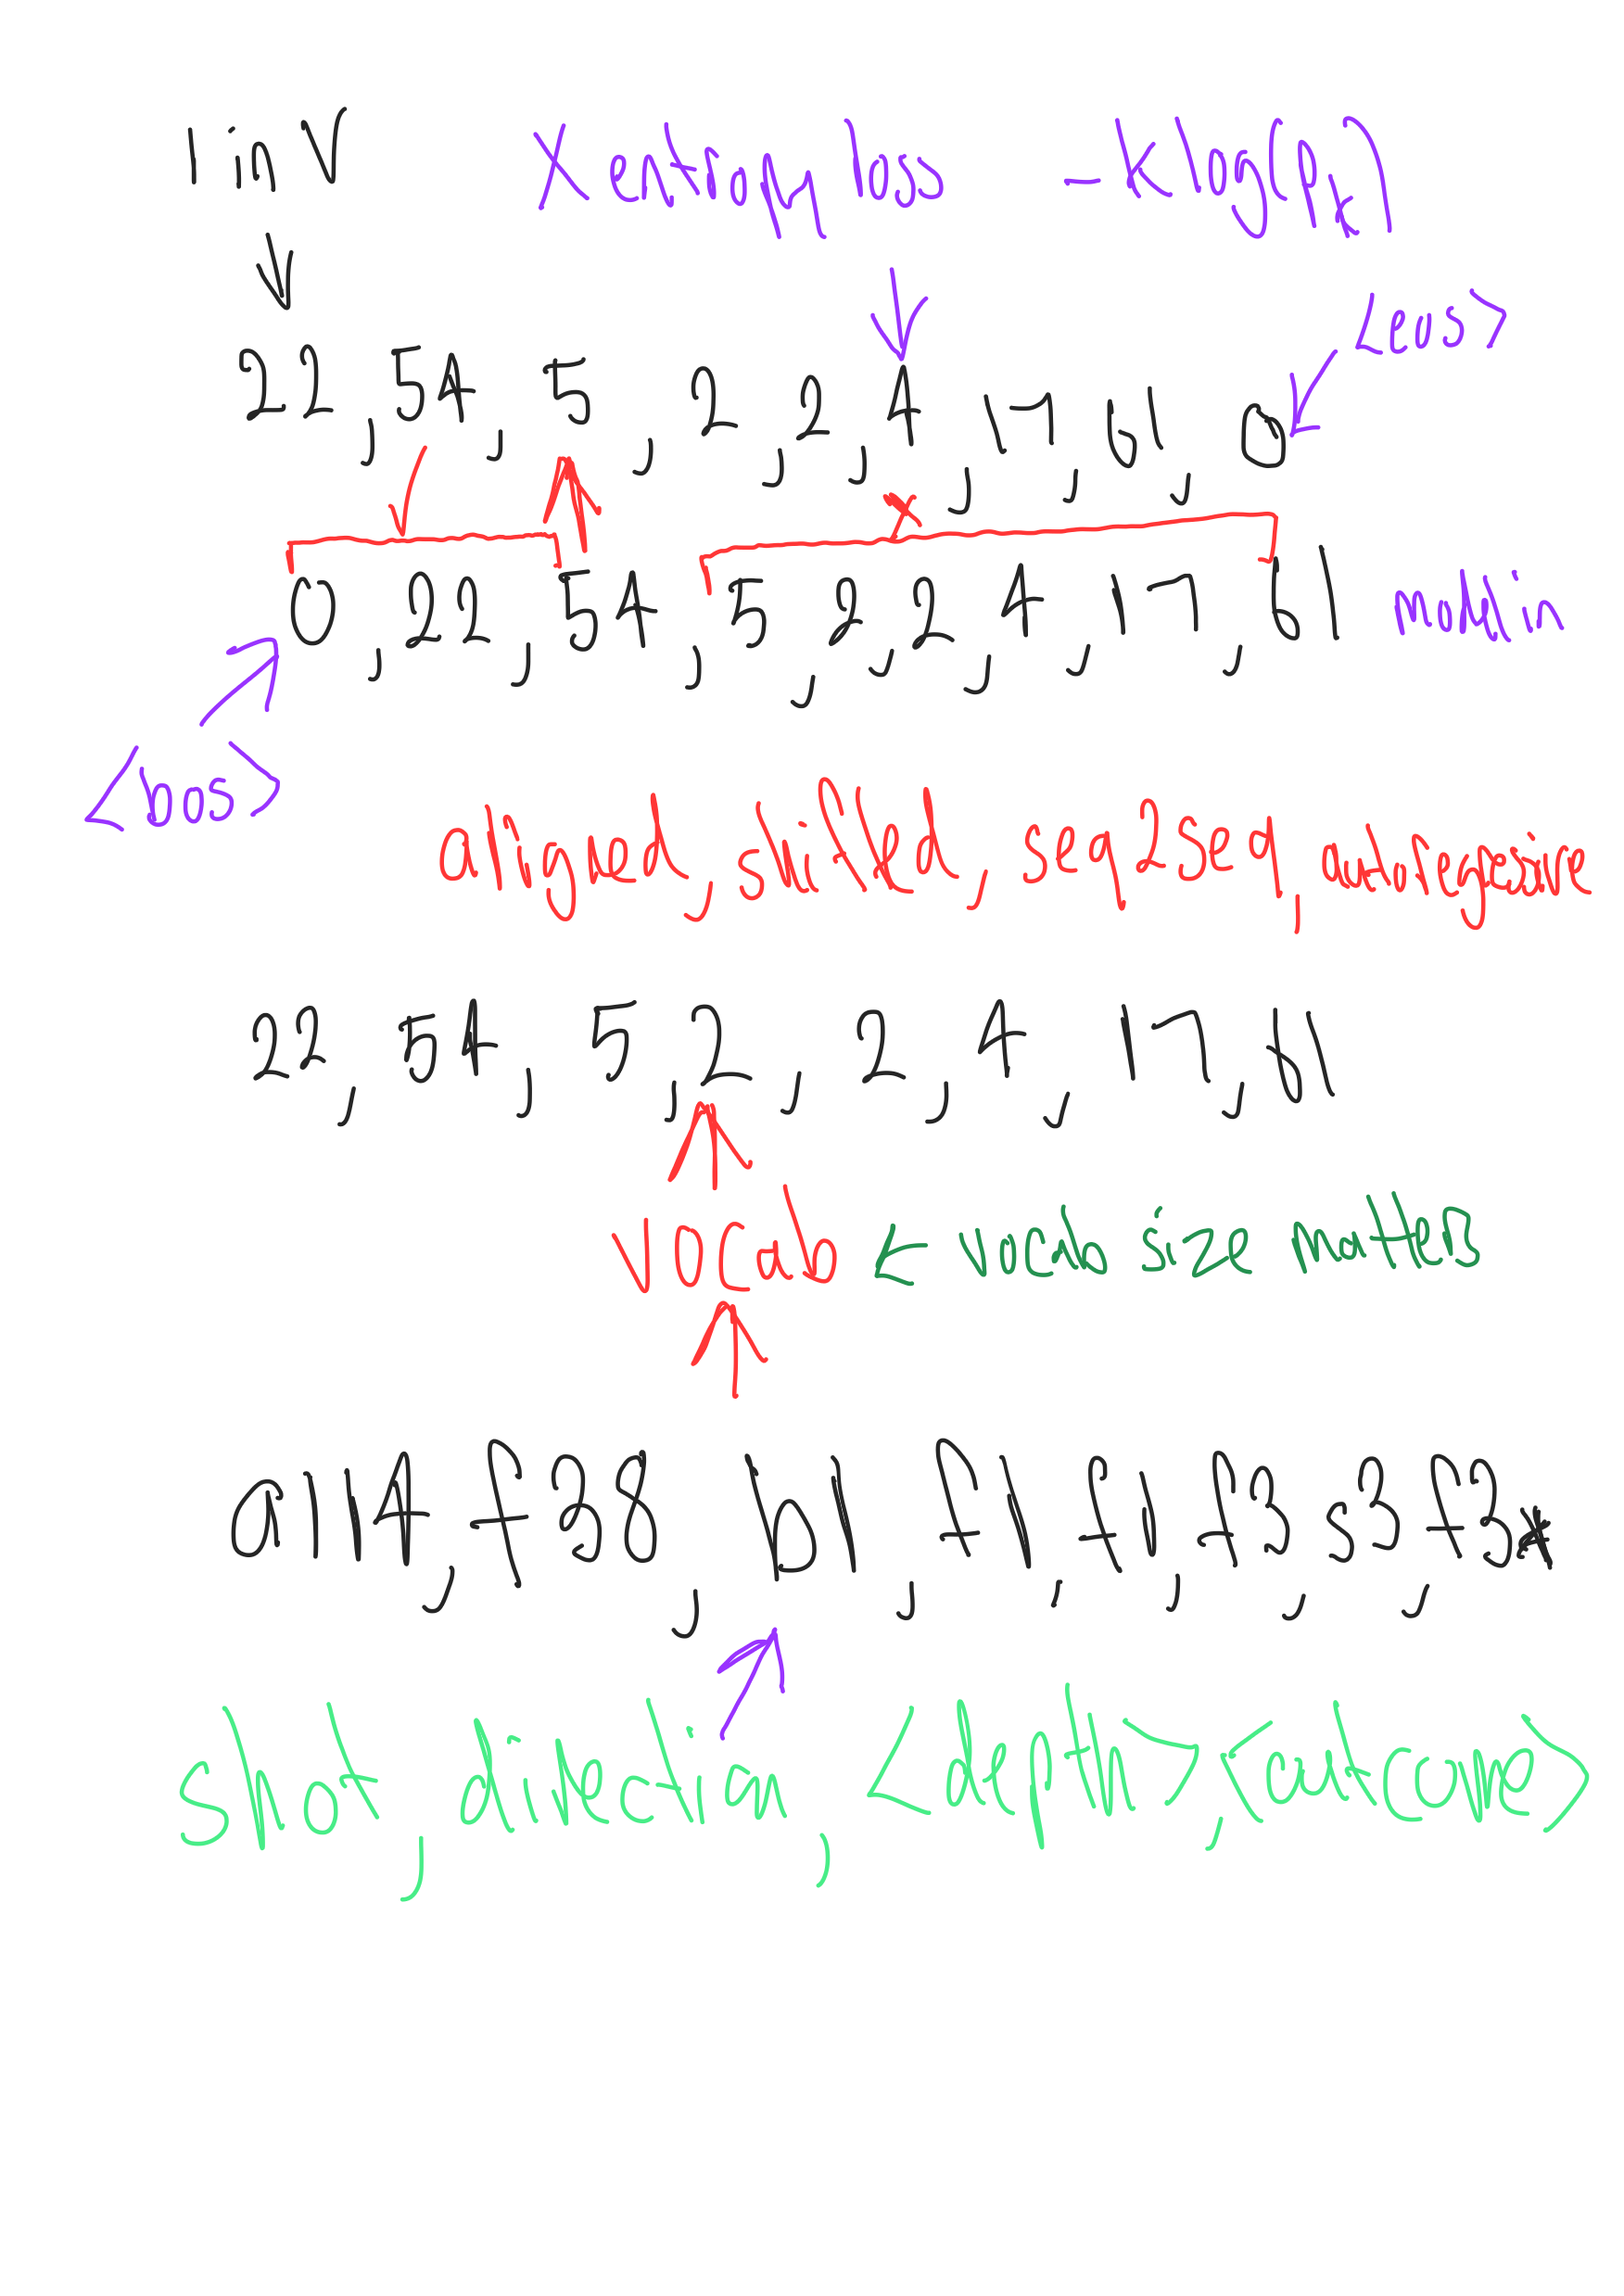 1 in V Xentropy loss -klog(pk)
<eos>
22, 54, 5, 2, 2, 4, 17, 61, 0
0, 22, 54, 5, 2, 2, 4, 17, 61
<bos>
aligned, shifted, seq2seq, autoregressive
22, 54, 5, 2, 2, 4, 17, 61
vocab < vocab size matters
a114, f38, b1, f1, f1, f3, s3, f3
shot, direction, <depth>, <outcome>